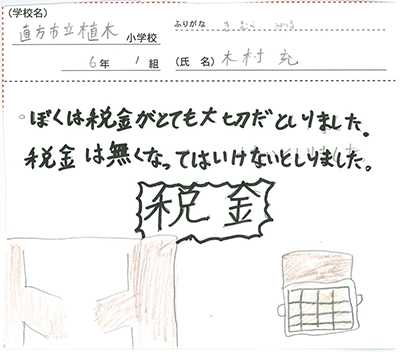 (学校名)
直方市立植木 小学校
ふりがな きむら みつる
6年 1組
(氏名) 木村 充
ぼくは税金がとても大切だとしりました。
税金は無くなってはいけないとしりました。
税金